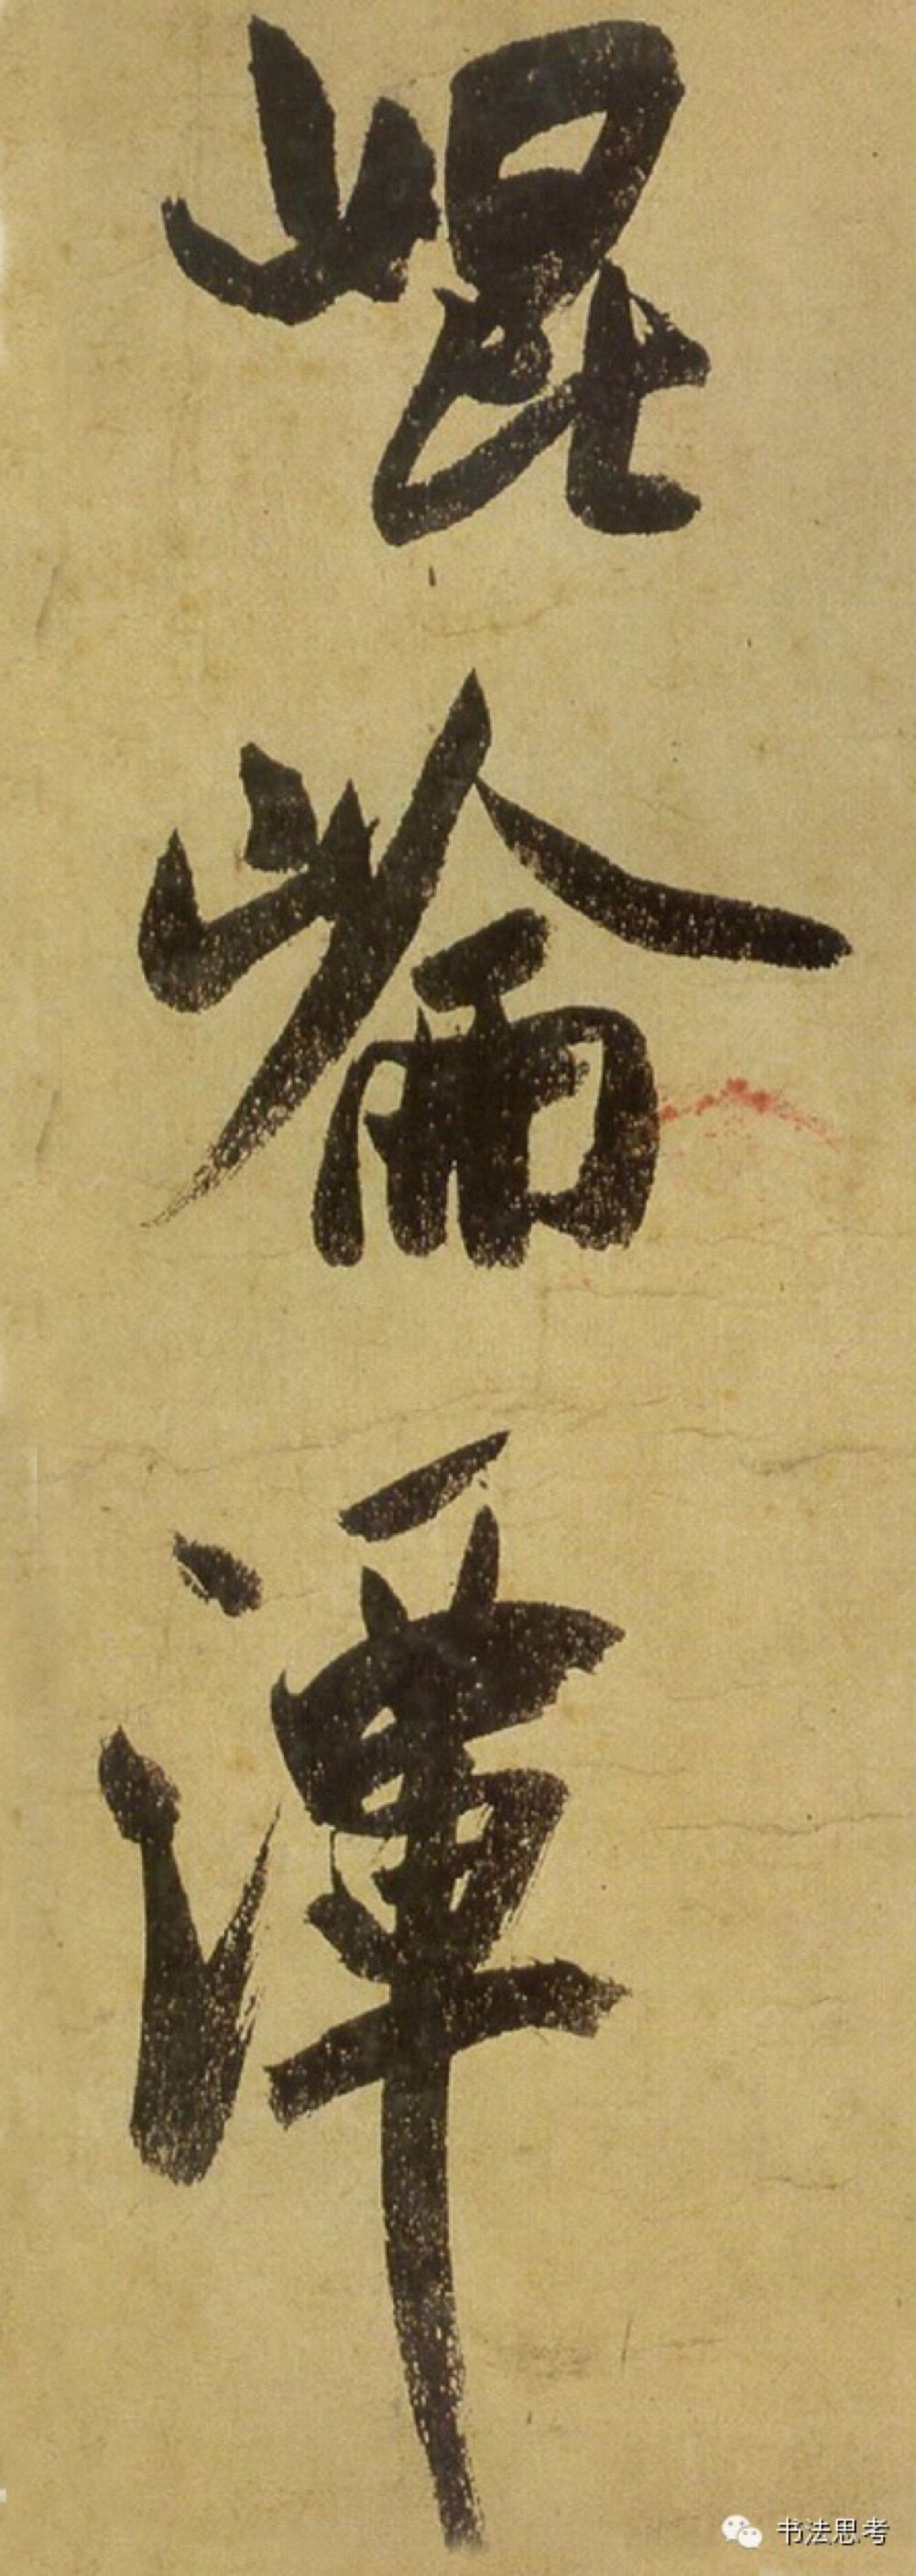 崐崘潭
书法思考